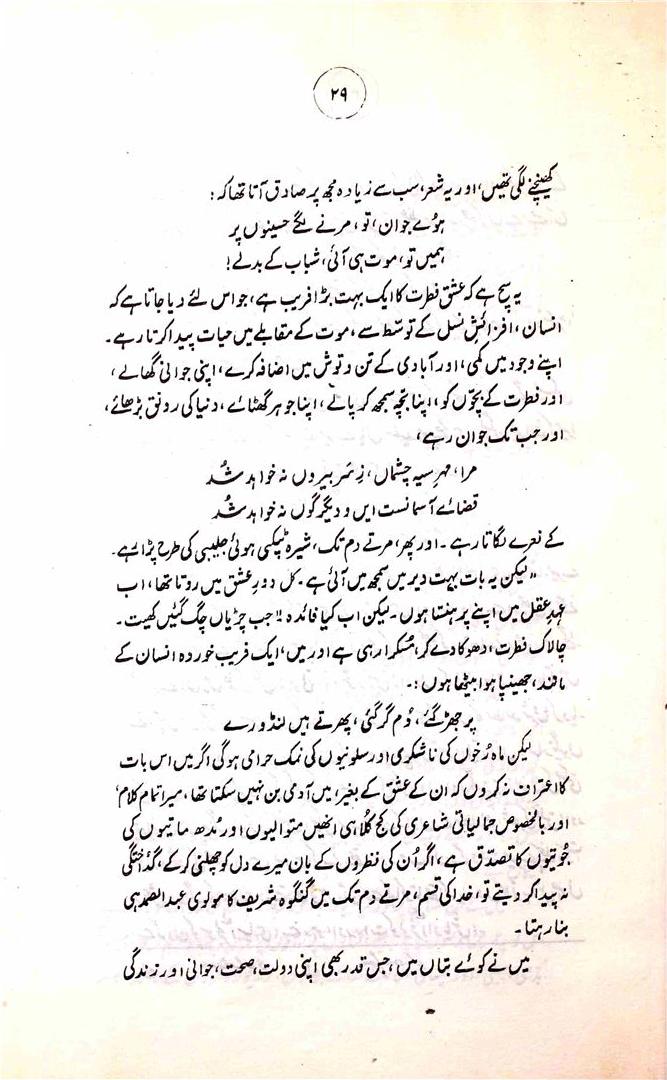 ۲۹
کھینچنے لگی تھیں، اور یہ شعر، سب سے زیادہ مجھ پر صادق آتا تھا کہ:
ہوئے جوان، تو، مرنے لگے حسینوں پر
ہمیں تو، موت ہی آئی، شباب کے بدلے!
یہ سچ ہے کہ عشق فطرت کا ایک بہت بڑا فریب ہے، جو اس لئے دیا جاتا ہے کہ
انسان، افزائشِ نسل کے توسّط سے، موت کے مقابلے میں حیات پیدا کرتا رہے۔
اپنے وجود میں کمی، اور آبادی کے تن و توش میں اضافہ کرے، اپنی جوانی گھالے،
اور فطرت کے بچّوں کو، اپنا بچّہ سمجھ کر پالے، اپنا جوہر گھٹائے، دنیا کی رونق بڑھائے،
اور جب تک جوان رہے،
مرا، مہرِ سیہ چشماں، زِسَر بیروں نہ خواہد شُد
قضائے آسمانست ایں و دیگر گوں نہ خواہد شُد
کے نعرے لگاتا رہے۔ اور پھر، مرتے دم تک، شیرہ ٹپکی ہوئی جلیبی کی طرح پڑا رہے۔
"لیکن یہ بات بہت دیر میں سمجھ میں آئی ہے۔ کل دورِ عشق میں روتا تھا، اب
عہدِ عقل میں اپنے پر ہنستا ہوں۔ لیکن اب کیا فائدہ" جب چڑیاں چگ گئیں کھیت۔
چالاک فطرت، دھوکا دے کر، مُسکرا رہی ہے اور میں، ایک فریب خوردہ انسان کے
مانند، جھینپا ہوا بیٹھا ہوں:۔
پر جھڑ گئے، دُم گر گئی، پھرتے ہیں لنڈورے
لیکن ماہ رُخوں کی ناشکری اور سلونیوں کی نمک حرامی ہوگی اگر میں اس بات
کا اعتراف نہ کروں کہ ان کے عشق کے بغیر، میں آدمی بن نہیں سکتا تھا، میرا تمام کلام،
اور بالخصوص جمالیاتی شاعری کی کج کُلاہی انھیں متوالیوں اور مُدھ ماتیوں کی
جُوتیوں کا تصدّق ہے، اگر اُن کی نظروں کے بان میرے دل کو چھلنی کرکے، گداختگی
نہ پیدا کر دیتے تو، خدا کی قسم، مرتے دم تک میں گنگوہ شریف کا مولوی عبدالصمد ہی
بنا رہتا۔
میں نے کوئے بتاں میں، جس قدر بھی اپنی دولت، صحت، جوانی اور زندگی